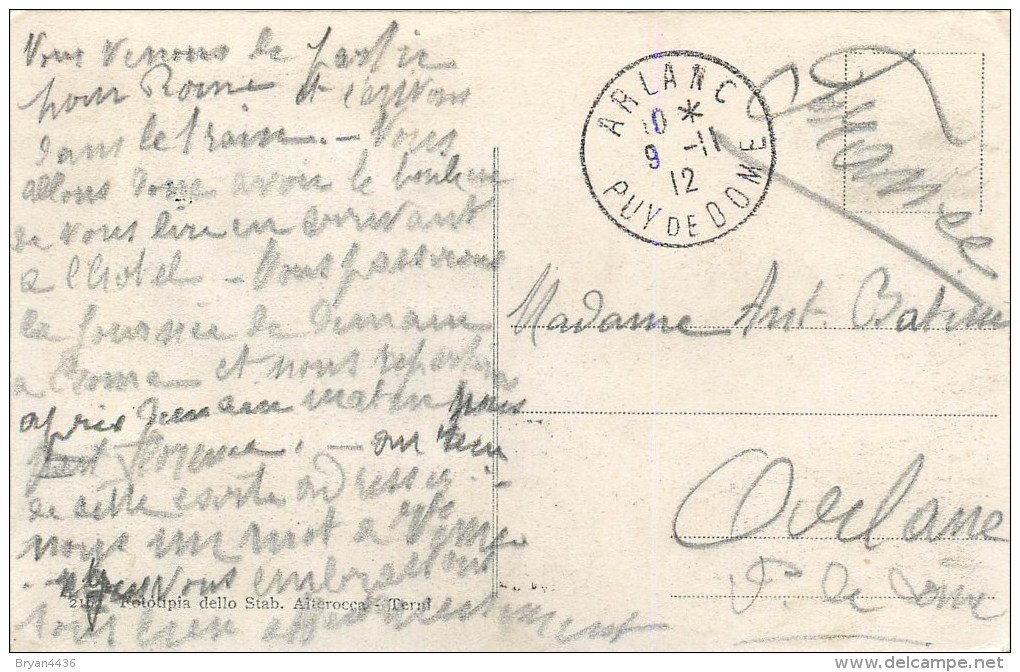 Nous venons de partir
pour Rome et écrivons
dans le train. - Nous
allons donc avoir le bonheur
de vous lire en arrivant
a l'hotel - Nous passerons
la journée de demain
a Rome et nous repartirons
après demain matin pour
Florence. -
de cette carte adresser
nous un mot a
vous embrassons
tous bien affectueusement
2164 - Fototipia dello Stab. Alterocca - Terni
ARLANC
10 *
9 -11
12
PUY DE DOME
France
Madame Ant. Batisse
Arlanc
P. de Dôme
Bryan4436
www.delcampe.net